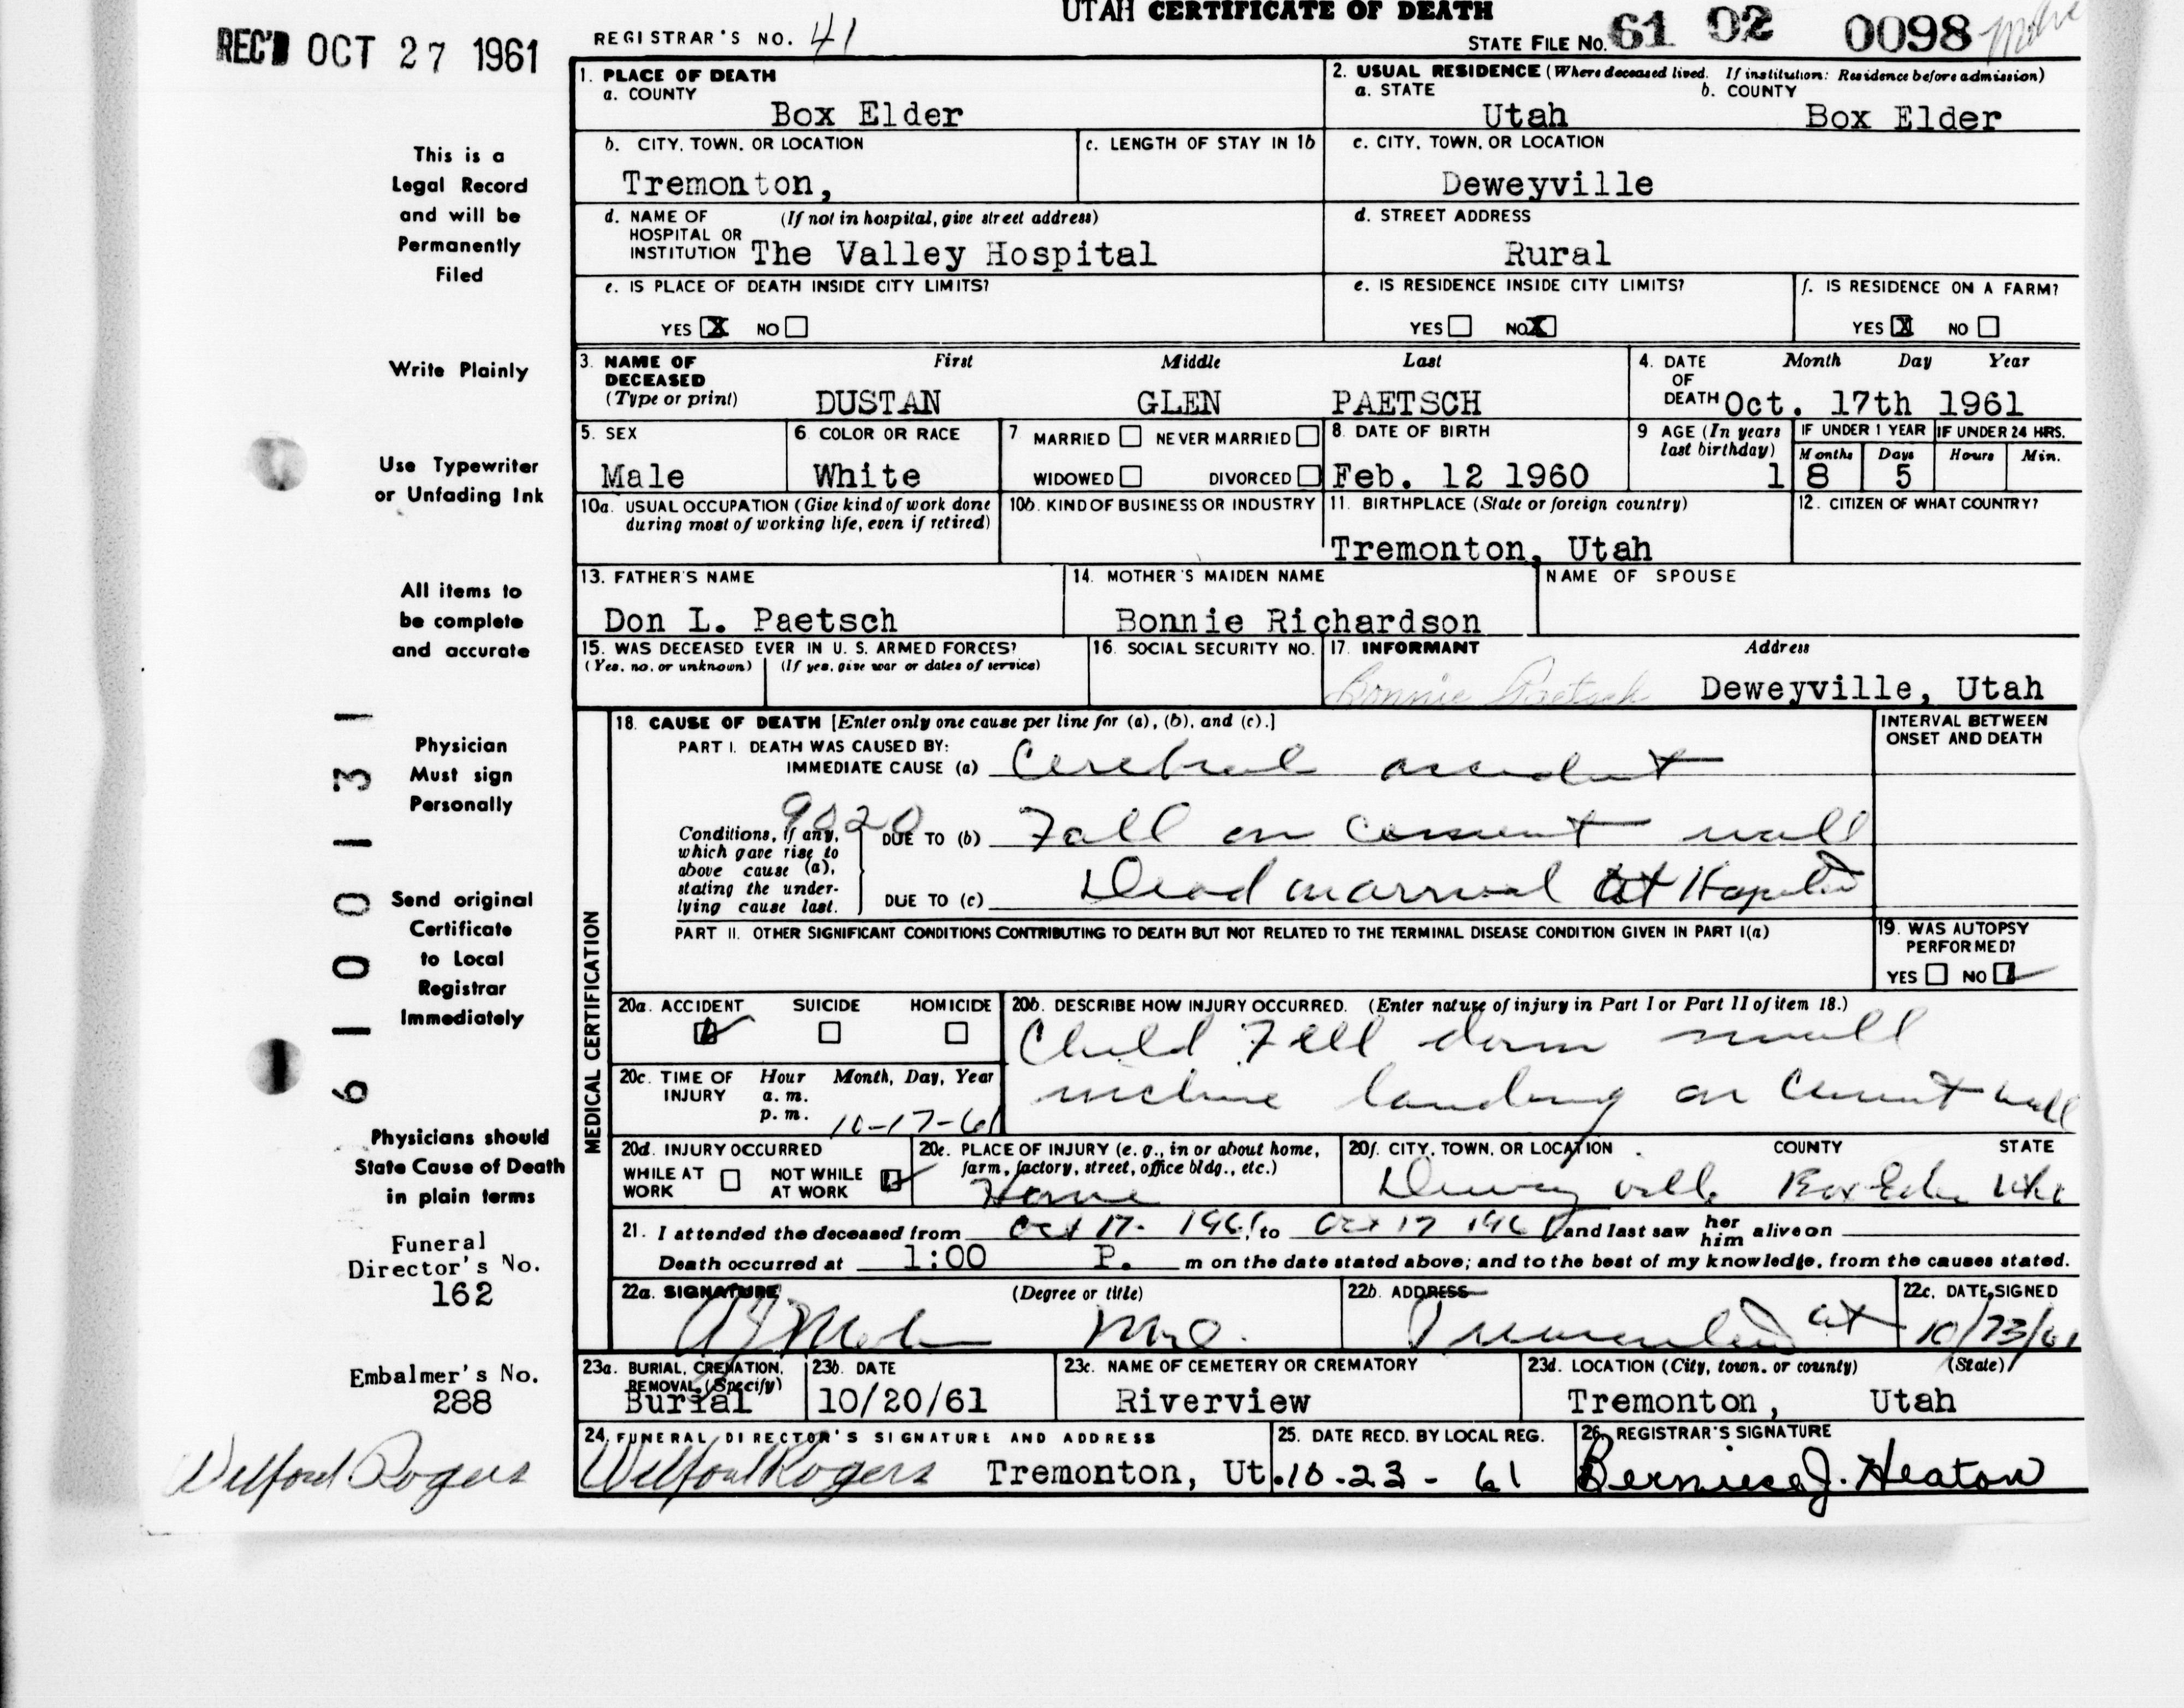 UTAH CERTIFICATE OF DEATH
REC'D OCT 27 1961
REGISTRAR'S NO. 41
STATE FILE No. 61 02 0098
1. PLACE OF DEATH
a. COUNTY
Box Elder
2. USUAL RESIDENCE (Where deceased lived. If institution: Residence before admission)
a. STATE
Utah
b. COUNTY
Box Elder
b. CITY, TOWN, OR LOCATION
Tremonton,
c. LENGTH OF STAY IN 1b
c. CITY, TOWN, OR LOCATION
Deweyville
d. NAME OF HOSPITAL OR INSTITUTION (If not in hospital, give street address)
The Valley Hospital
d. STREET ADDRESS
Rural
e. IS PLACE OF DEATH INSIDE CITY LIMITS?
YES X NO
e. IS RESIDENCE INSIDE CITY LIMITS?
YES NO X
f. IS RESIDENCE ON A FARM?
YES X NO
3. NAME OF DECEASED (Type or print)
First Middle Last
DUSTAN GLEN PAETSCH
4. DATE OF DEATH
Month Day Year
Oct. 17th 1961
5. SEX
Male
6. COLOR OR RACE
White
7 MARRIED NEVER MARRIED
WIDOWED DIVORCED
8. DATE OF BIRTH
Feb. 12 1960
9 AGE (In years last birthday)
1
IF UNDER 1 YEAR
Months Days
8 5
IF UNDER 24 HRS.
Hours Min.
10a. USUAL OCCUPATION (Give kind of work done during most of working life, even if retired)
10b. KIND OF BUSINESS OR INDUSTRY
11. BIRTHPLACE (State or foreign country)
Tremonton, Utah
12. CITIZEN OF WHAT COUNTRY?
13. FATHER'S NAME
Don L. Paetsch
14. MOTHER'S MAIDEN NAME
Bonnie Richardson
NAME OF SPOUSE
15. WAS DECEASED EVER IN U. S. ARMED FORCES?
(Yes, no, or unknown) (If yes, give war or dates of service)
16. SOCIAL SECURITY NO.
17. INFORMANT
Bonnie Paetsch
Address
Deweyville, Utah
MEDICAL CERTIFICATION
18. CAUSE OF DEATH [Enter only one cause per line for (a), (b), and (c).]
INTERVAL BETWEEN ONSET AND DEATH
PART I. DEATH WAS CAUSED BY:
IMMEDIATE CAUSE (a) Cerebral accident
9020
Conditions, if any, which gave rise to above cause (a), stating the underlying cause last.
DUE TO (b) Fall on cement wall
DUE TO (c) Dead on arrival at Hospital
PART II. OTHER SIGNIFICANT CONDITIONS CONTRIBUTING TO DEATH BUT NOT RELATED TO THE TERMINAL DISEASE CONDITION GIVEN IN PART I(a)
19. WAS AUTOPSY PERFORMED?
YES NO ✓
20a. ACCIDENT ✓ SUICIDE HOMICIDE
20b. DESCRIBE HOW INJURY OCCURRED. (Enter nature of injury in Part I or Part II of item 18.)
Child Fell down small
incline landing on cement wall
20c. TIME OF INJURY
Hour Month, Day, Year
a. m.
p. m. 10-17-61
20d. INJURY OCCURRED
WHILE AT WORK NOT WHILE AT WORK ✓
20e. PLACE OF INJURY (e. g., in or about home, farm, factory, street, office bldg., etc.)
Home
20f. CITY, TOWN, OR LOCATION COUNTY STATE
Deweyville Box Elder Utah
21. I attended the deceased from Oct 17- 1961, to Oct 17 1961 and last saw her him alive on
Death occurred at 1:00 P. m on the date stated above; and to the best of my knowledge, from the causes stated.
22a. SIGNATURE (Degree or title)
M.D.
22b. ADDRESS
Tremonton Ut
22c. DATE SIGNED
10/23/61
23a. BURIAL, CREMATION, REMOVAL (Specify)
Burial
23b. DATE
10/20/61
23c. NAME OF CEMETERY OR CREMATORY
Riverview
23d. LOCATION (City, town, or county) (State)
Tremonton, Utah
24. FUNERAL DIRECTOR'S SIGNATURE AND ADDRESS
Wilford Rogers Tremonton, Ut.
25. DATE RECD. BY LOCAL REG.
10-23-61
26. REGISTRAR'S SIGNATURE
Berniece J. Heaton
This is a
Legal Record
and will be
Permanently
Filed
Write Plainly
Use Typewriter
or Unfading Ink
All items to
be complete
and accurate
Physician
Must sign
Personally
Send original
Certificate
to Local
Registrar
Immediately
Physicians should
State Cause of Death
in plain terms
Funeral
Director's No.
162
Embalmer's No.
288
Wilford Rogers
6 1 0 0 1 3 1